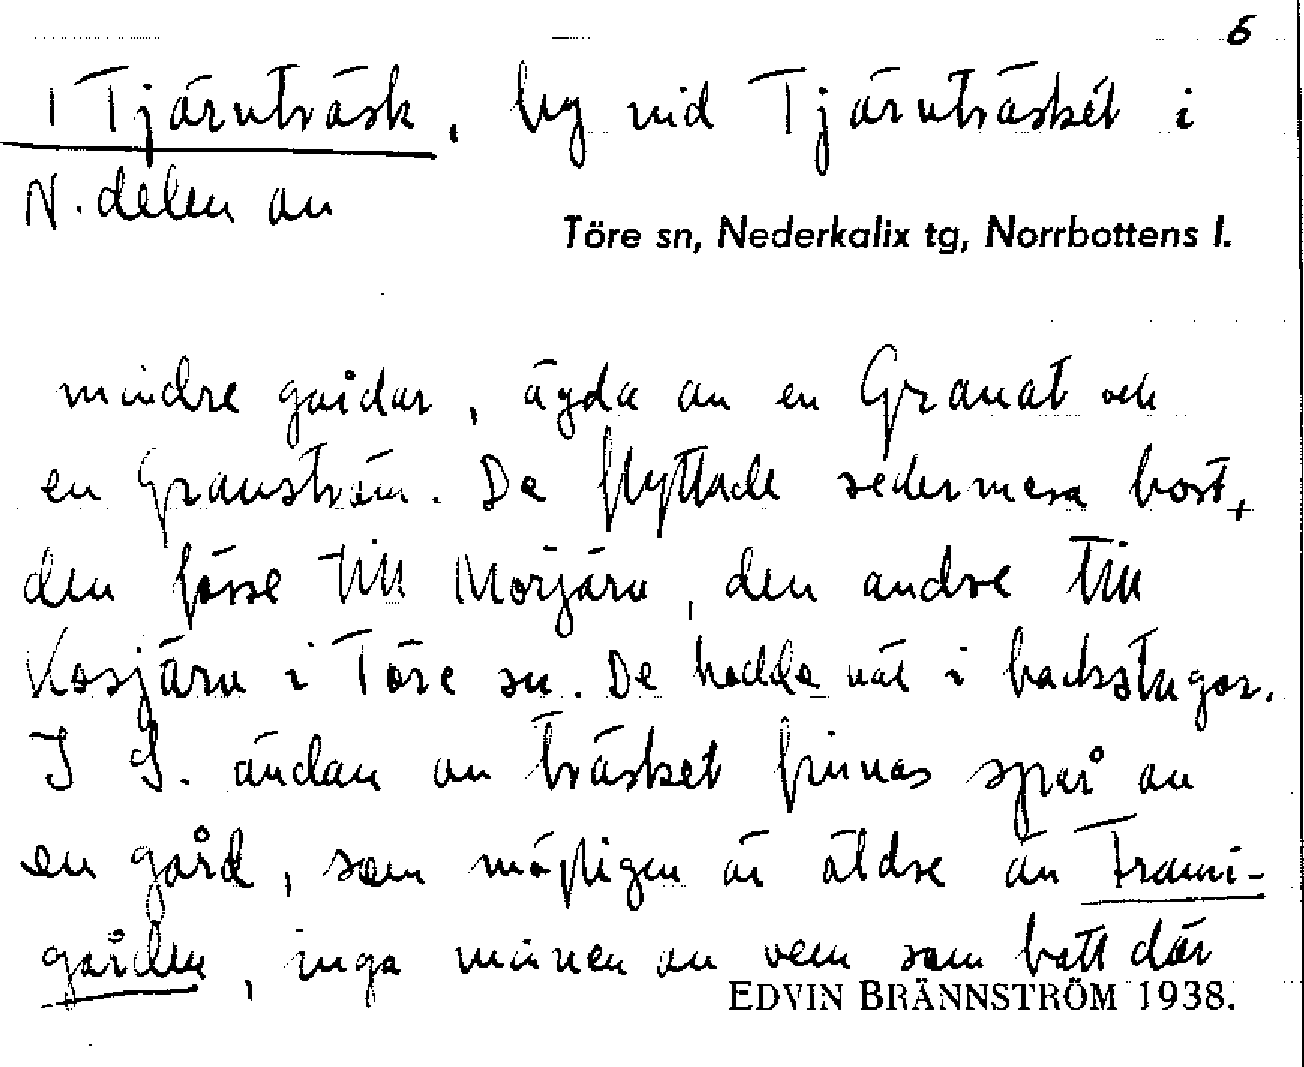 5
1 Tjärnträsk, by vid Tjärnträsket i
N. delen av
Töre sn, Nederkalix tg, Norrbottens l.
mindre gårdar, ägda av en Granat och
en Granström. De flyttade sedermera bort,
den förre till Morjärv, den andre till
Kosjärv i Töre sn. De hadde väl i backstugor.
I S. ändan av träsket finnas spår av
en gård, som möjligen är äldre än Frami-
gården, inga minnen av vem som bott där
EDVIN BRÄNNSTRÖM 1938.